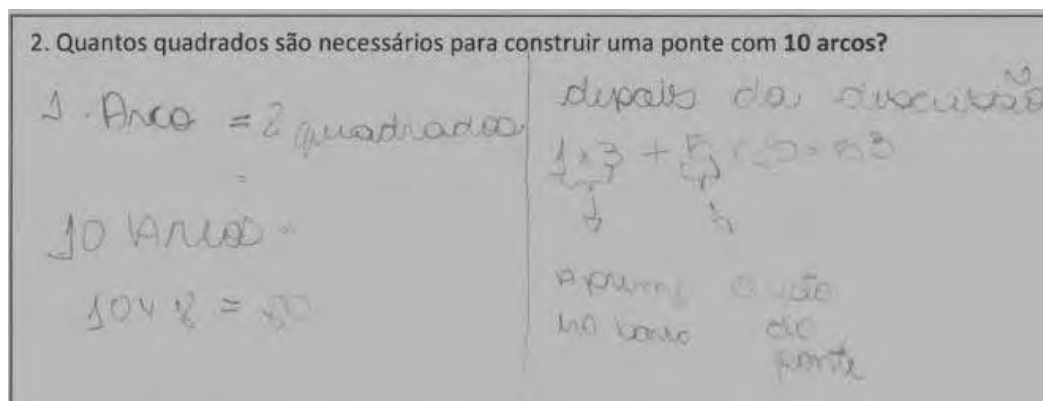 2. Quantos quadrados são necessários para construir uma ponte com 10 arcos?
1 Arco = 8 quadrados
=
10 Arcos =
10 x 8 = 80
depois da discussão
1x3 + 5 x = 53
A
no
do
ponte